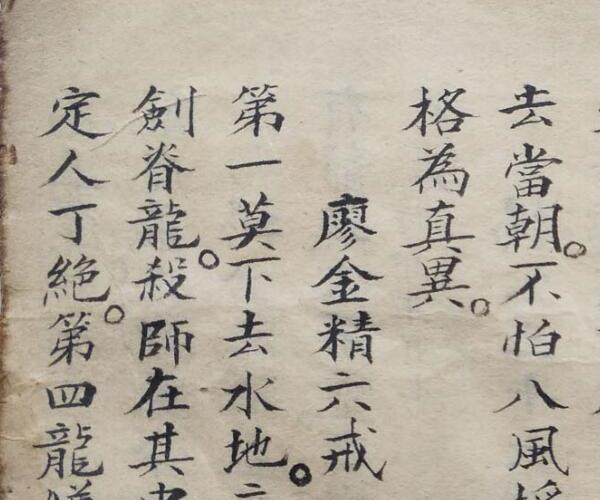 去當朝。不怕八風
格為真異。
廖金精六戒
第一莫下去水地。
劍脊龍。殺師在其
定人丁絕。第四龍